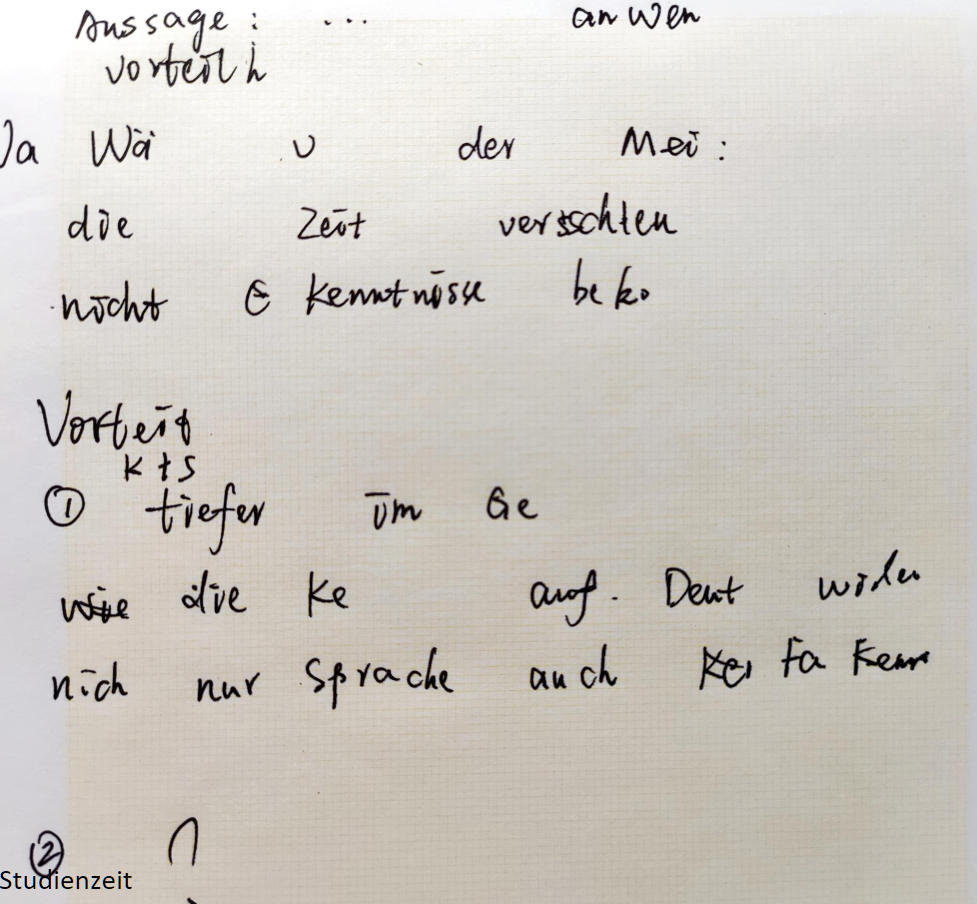 Aussage: ... anwen
vorteilh
Ja Wäi u der Mei:
die Zeit verschten
nicht E kenntnisse beko
Vorteil
K t S
① tiefer im Ge
die Ke auf. Deut
nich nur Sprache auch Fa Kenn
②
Studienzeit